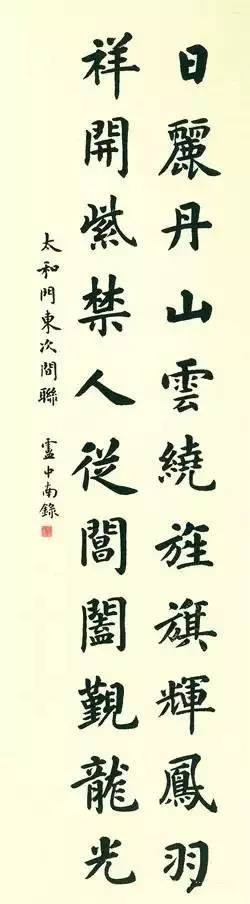 日麗丹山雲繞旌旗輝鳳羽
祥開紫禁人從閶闔覲龍光
太和門東次間聯 盧中南錄